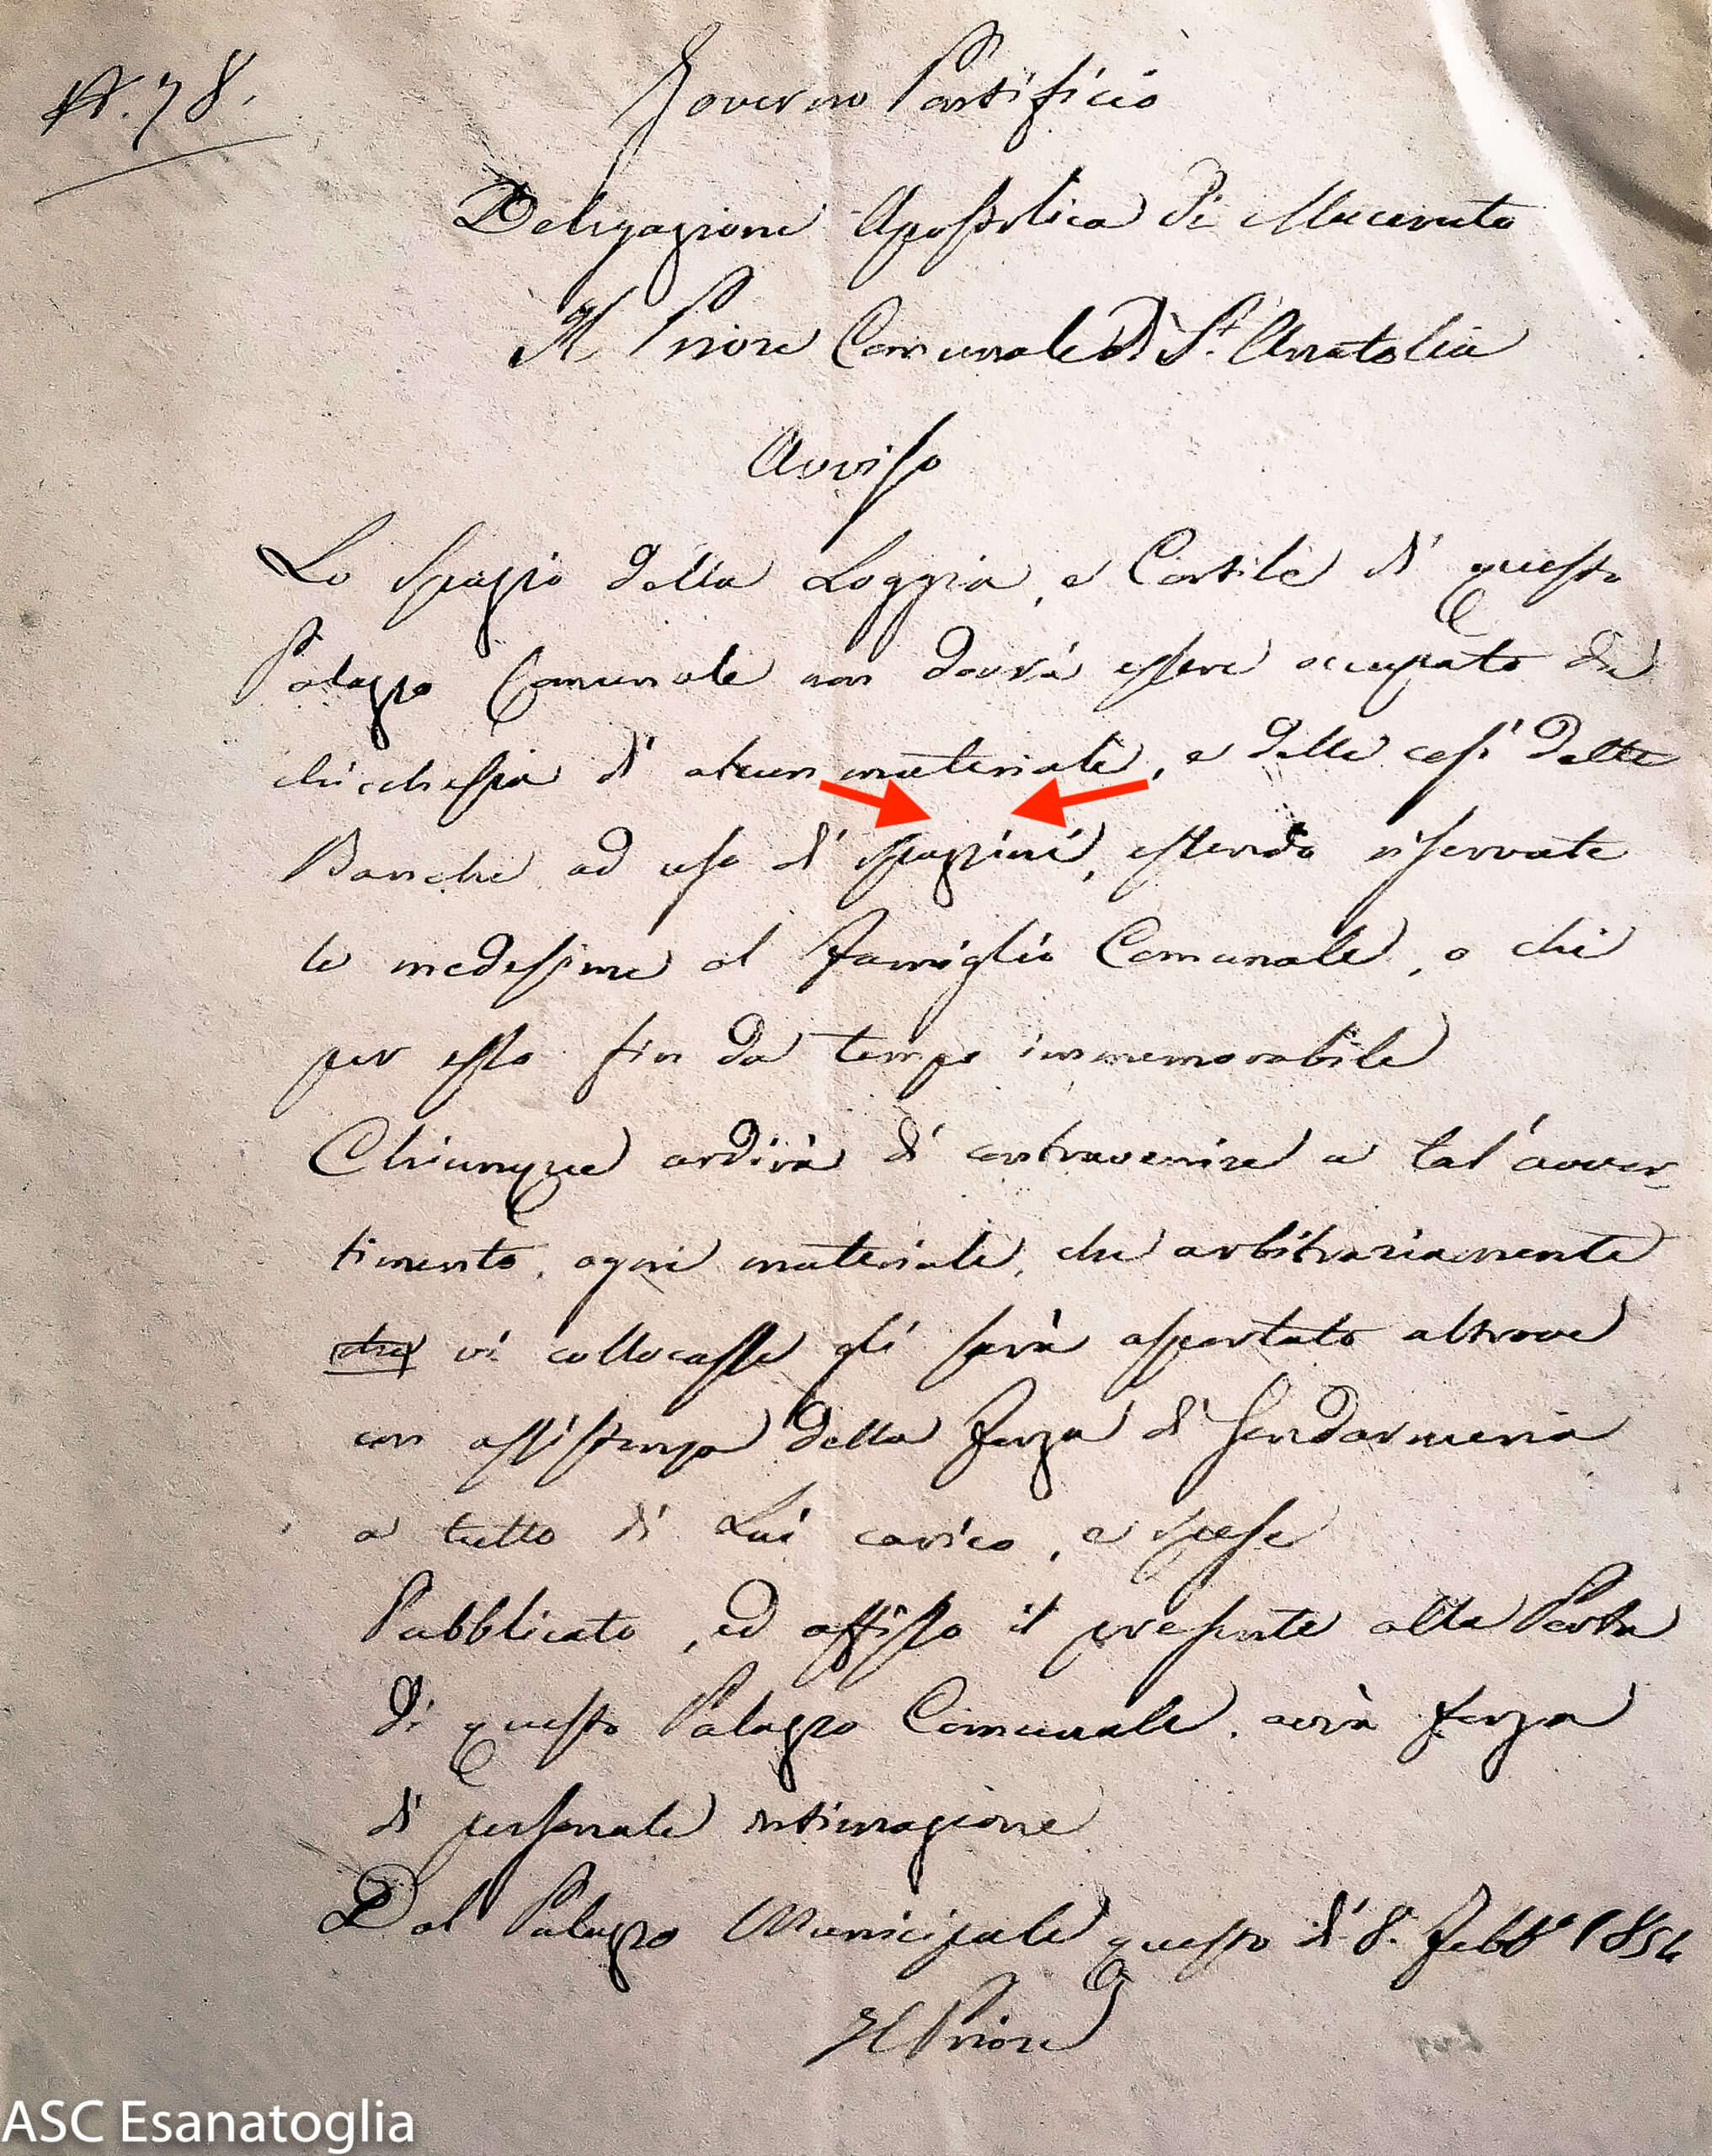 N. 78.
Governo Pontificio
Delegazione Apostolica di Macerata
Il Priore Comunale di S.t Anatolia
Avviso
Lo spazio della Loggia, e Cortile di questo
Palazzo Comunale non dovrà essere occupato da
chicchessia di alcun materiale, e delle così dette
Banche ad uso di spazini, essendo riservate
le medesime al Famiglio Comunale, o chi
per esso fin da tempo immemorabile
Chiunque ardirà di contravenire a tal'avver-
timento, ogni materiale, che arbitrariamente
che vi collocasse gli sarà asportato altrove
con assistenza della Forza di Gendarmeria
a tutto di Lui carico, e spese
Pubblicato, ed affisso il presente alla Porta
di questo Palazzo Comunale, avrà forza
di personale intimazione
Dal Palazzo Municipale questo dì 8. Febb.o 1854
Il Priore
ASC Esanatoglia